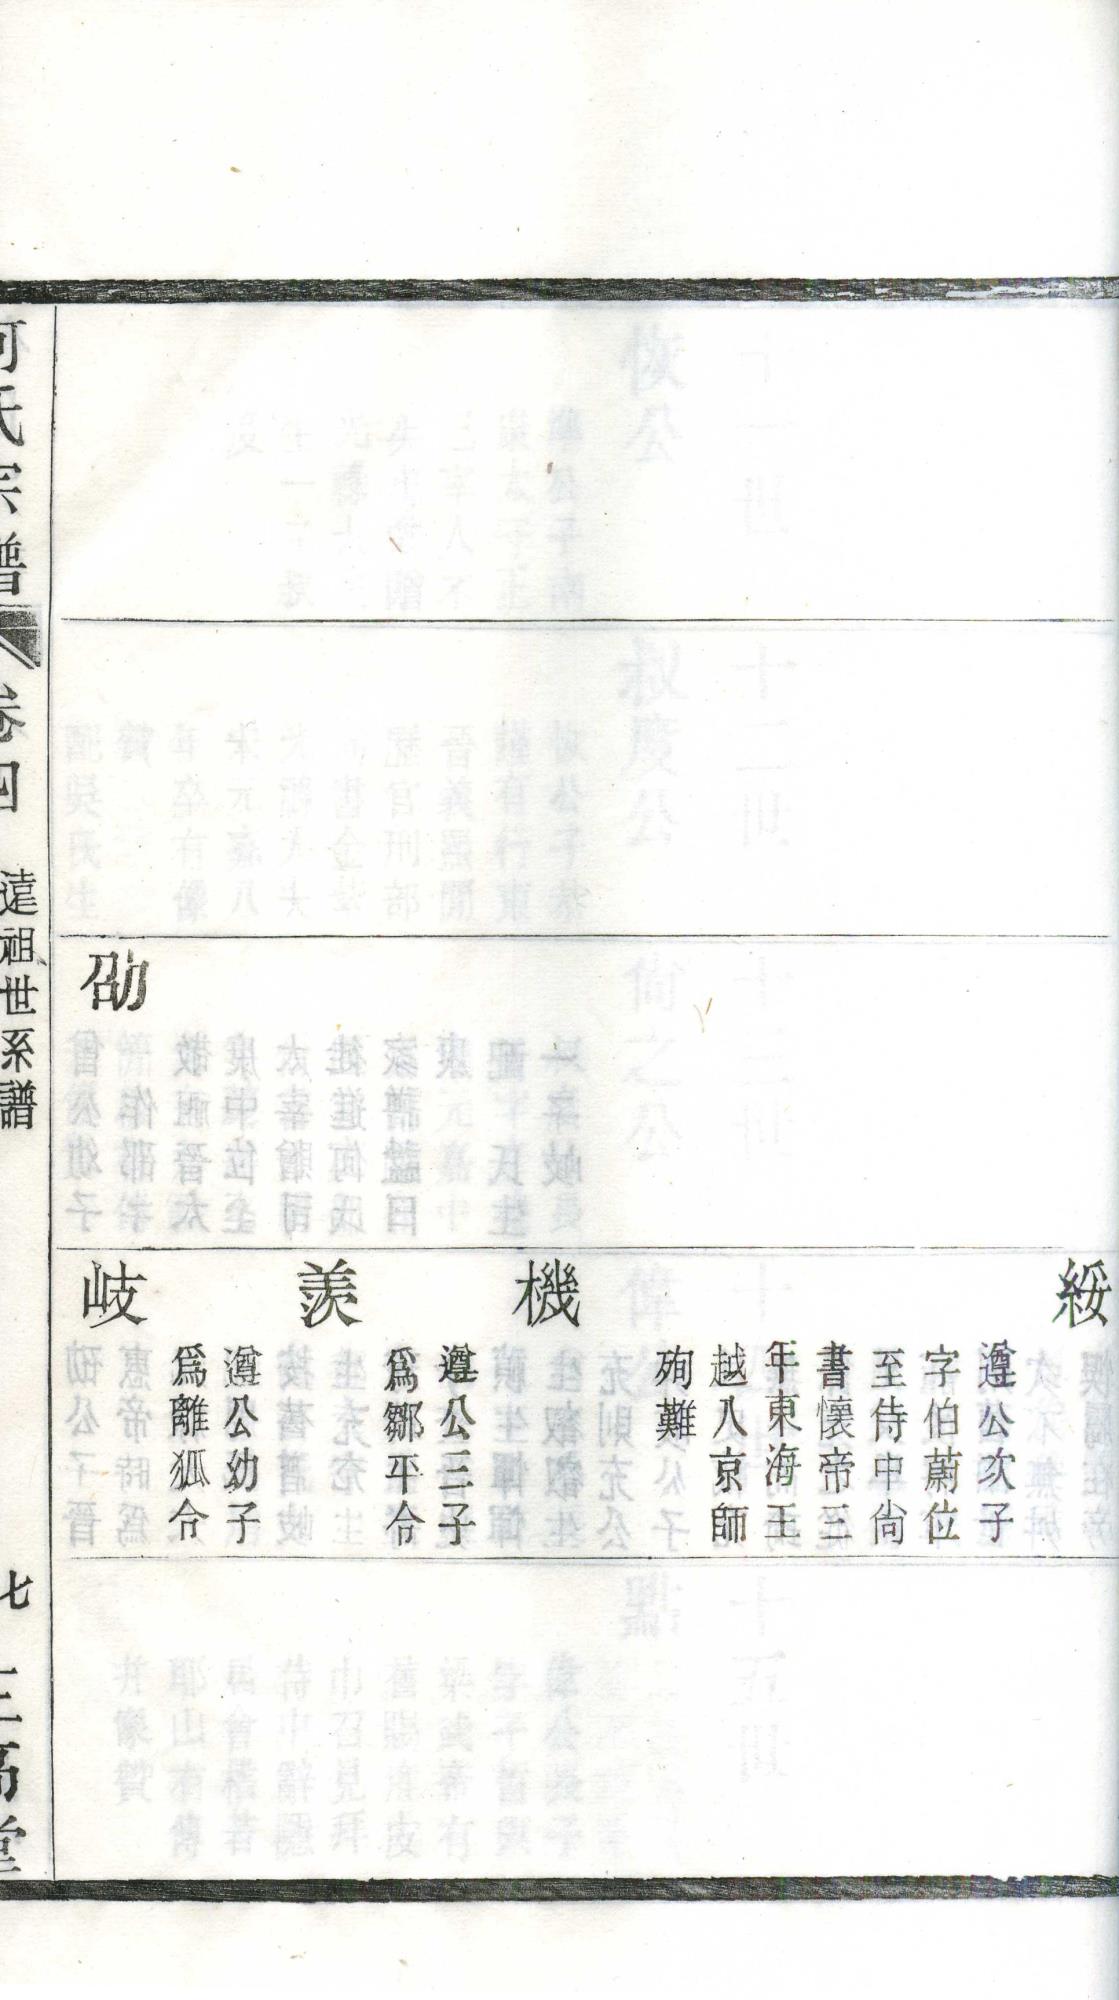 綏
遵公次子
字伯蔚位
至侍中尙
書懷帝三
年東海王
越入京師
殉難
機
遵公三子
爲鄒平令
羨
遵公幼子
爲離狐令
劭
岐
何氏宗譜
卷四
遠祖世系譜
七
三高堂